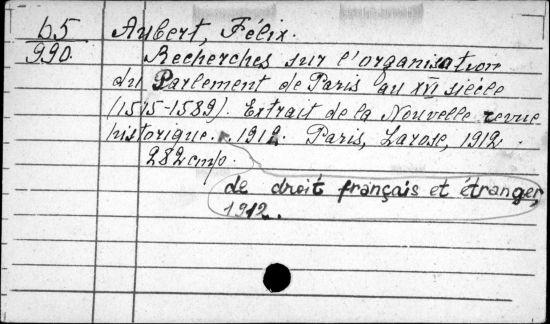 65 Aubert, Félix.
990. Recherches sur l'organisation
du Parlement de Paris au XVI siècle
(1515-1589). Extrait de la Nouvelle revue
historique. 1912. Paris, Larose, 1912.
282
de droit français et étranger,
1912.